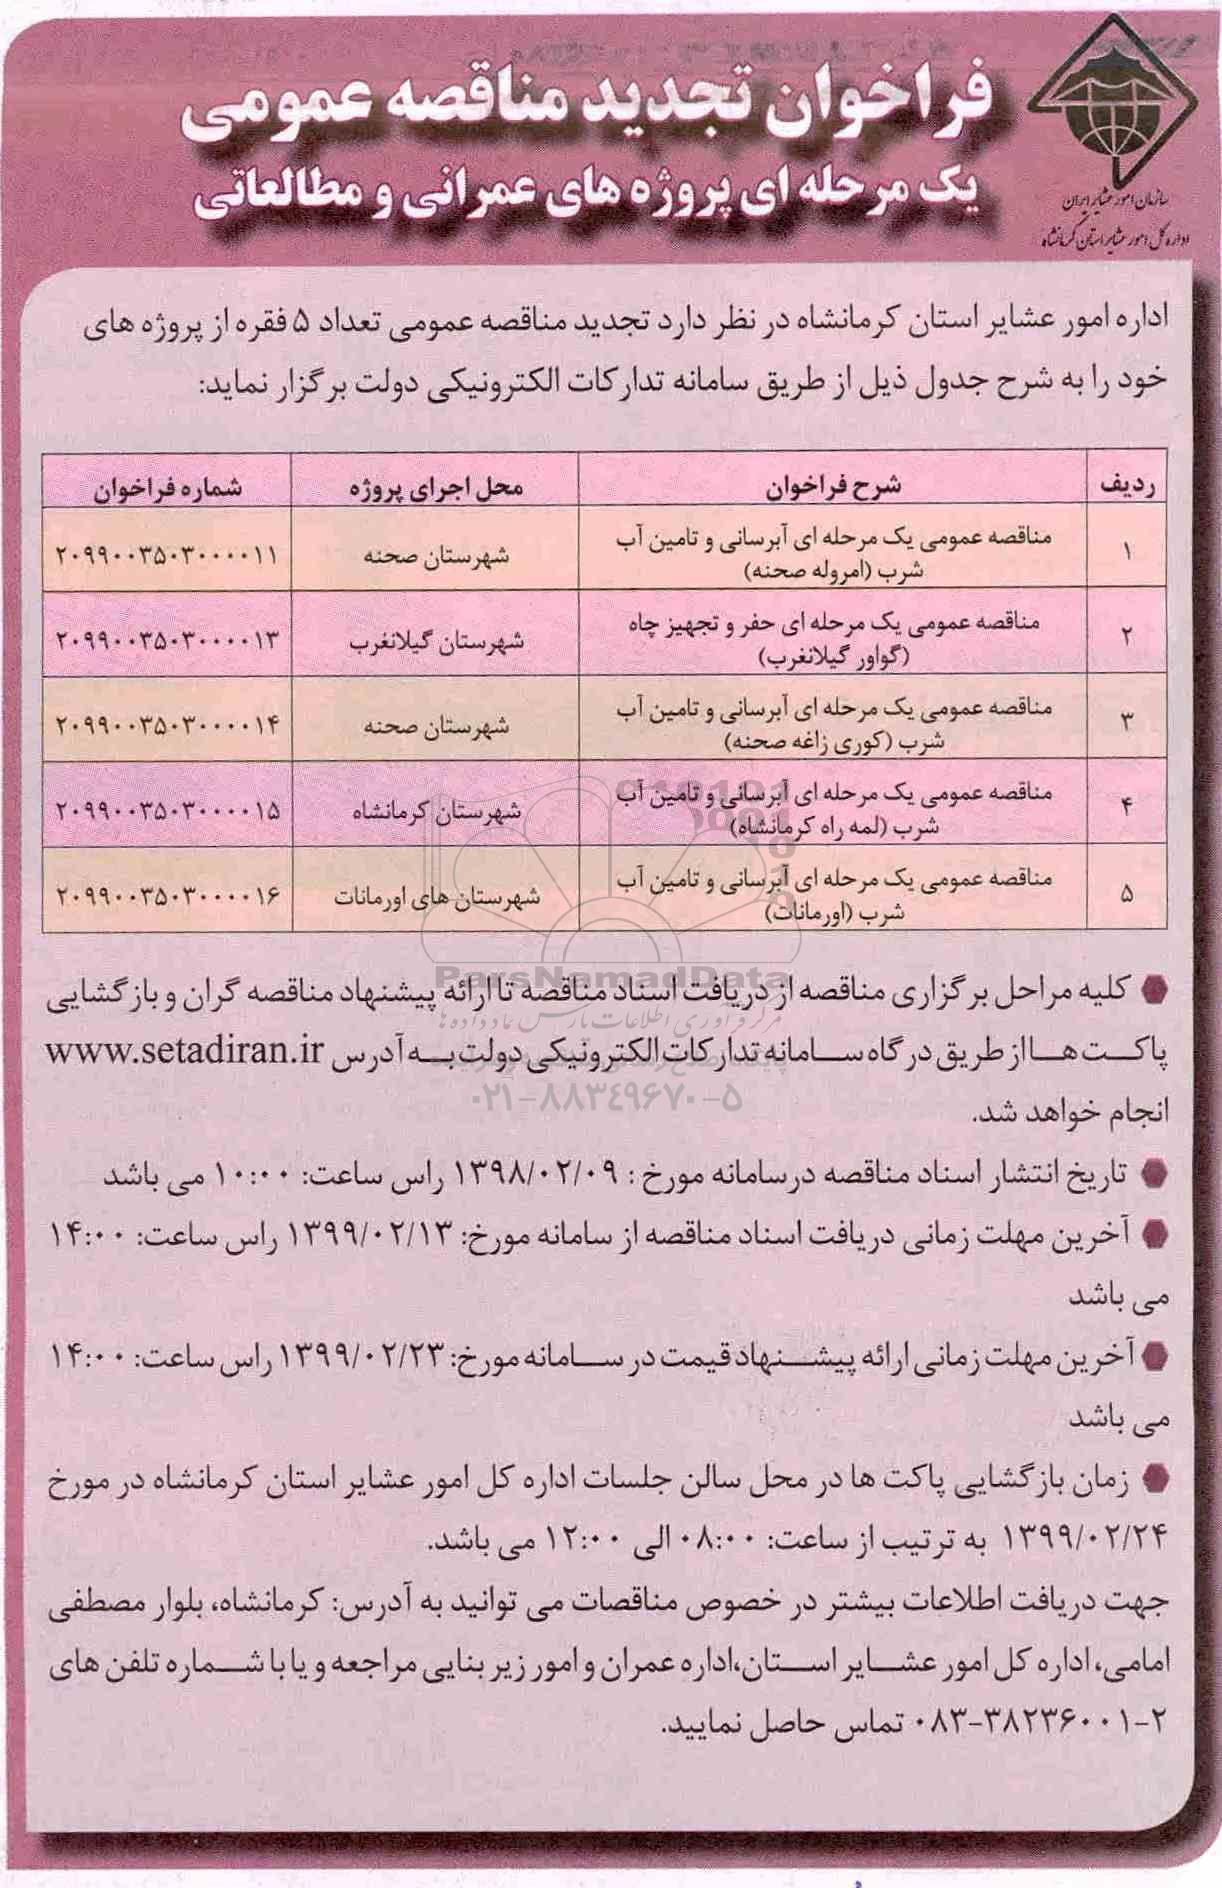 فراخوان تجدید مناقصه عمومی
یک مرحله ای پروژه های عمرانی و مطالعاتی
سازمان امور عشایر ایران
اداره کل امور عشایر استان کرمانشاه
اداره امور عشایر استان کرمانشاه در نظر دارد تجدید مناقصه عمومی تعداد ۵ فقره از پروژه های
خود را به شرح جدول ذیل از طریق سامانه تدارکات الکترونیکی دولت برگزار نماید:
ردیف شرح فراخوان محل اجرای پروژه شماره فراخوان
۱ مناقصه عمومی یک مرحله ای آبرسانی و تامین آب
شرب (امروله صحنه) شهرستان صحنه ۲۰۹۹۰۰۳۵۰۳۰۰۰۰۱۱
۲ مناقصه عمومی یک مرحله ای حفر و تجهیز چاه
(گواور گیلانغرب) شهرستان گیلانغرب ۲۰۹۹۰۰۳۵۰۳۰۰۰۰۱۳
۳ مناقصه عمومی یک مرحله ای آبرسانی و تامین آب
شرب (کوری زاغه صحنه) شهرستان صحنه ۲۰۹۹۰۰۳۵۰۳۰۰۰۰۱۴
۴ مناقصه عمومی یک مرحله ای آبرسانی و تامین آب
شرب (لمه راه کرمانشاه) شهرستان کرمانشاه ۲۰۹۹۰۰۳۵۰۳۰۰۰۰۱۵
۵ مناقصه عمومی یک مرحله ای آبرسانی و تامین آب
شرب (اورمانات) شهرستان های اورمانات ۲۰۹۹۰۰۳۵۰۳۰۰۰۰۱۶
ParsNamadData
مرکز فرآوری اطلاعات پارس نماد داده ها
۰۲۱-۸۸۳۴۹۶۷۰-۵
کلیه مراحل برگزاری مناقصه از دریافت اسناد مناقصه تا ارائه پیشنهاد مناقصه گران و بازگشایی
پاکت ها از طریق درگاه سامانه تدارکات الکترونیکی دولت به آدرس www.setadiran.ir
انجام خواهد شد.
تاریخ انتشار اسناد مناقصه درسامانه مورخ : ۱۳۹۸/۰۲/۰۹ راس ساعت: ۱۰:۰۰ می باشد
آخرین مهلت زمانی دریافت اسناد مناقصه از سامانه مورخ: ۱۳۹۹/۰۲/۱۳ راس ساعت: ۱۴:۰۰
می باشد
آخرین مهلت زمانی ارائه پیشنهاد قیمت در سامانه مورخ: ۱۳۹۹/۰۲/۲۳ راس ساعت: ۱۴:۰۰
می باشد
زمان بازگشایی پاکت ها در محل سالن جلسات اداره کل امور عشایر استان کرمانشاه در مورخ
۱۳۹۹/۰۲/۲۴ به ترتیب از ساعت: ۰۸:۰۰ الی ۱۲:۰۰ می باشد.
جهت دریافت اطلاعات بیشتر در خصوص مناقصات می توانید به آدرس: کرمانشاه، بلوار مصطفی
امامی، اداره کل امور عشایر استان،اداره عمران و امور زیر بنایی مراجعه و یا با شماره تلفن های
۰۸۳-۳۸۲۳۶۰۰۱-۲ تماس حاصل نمایید.